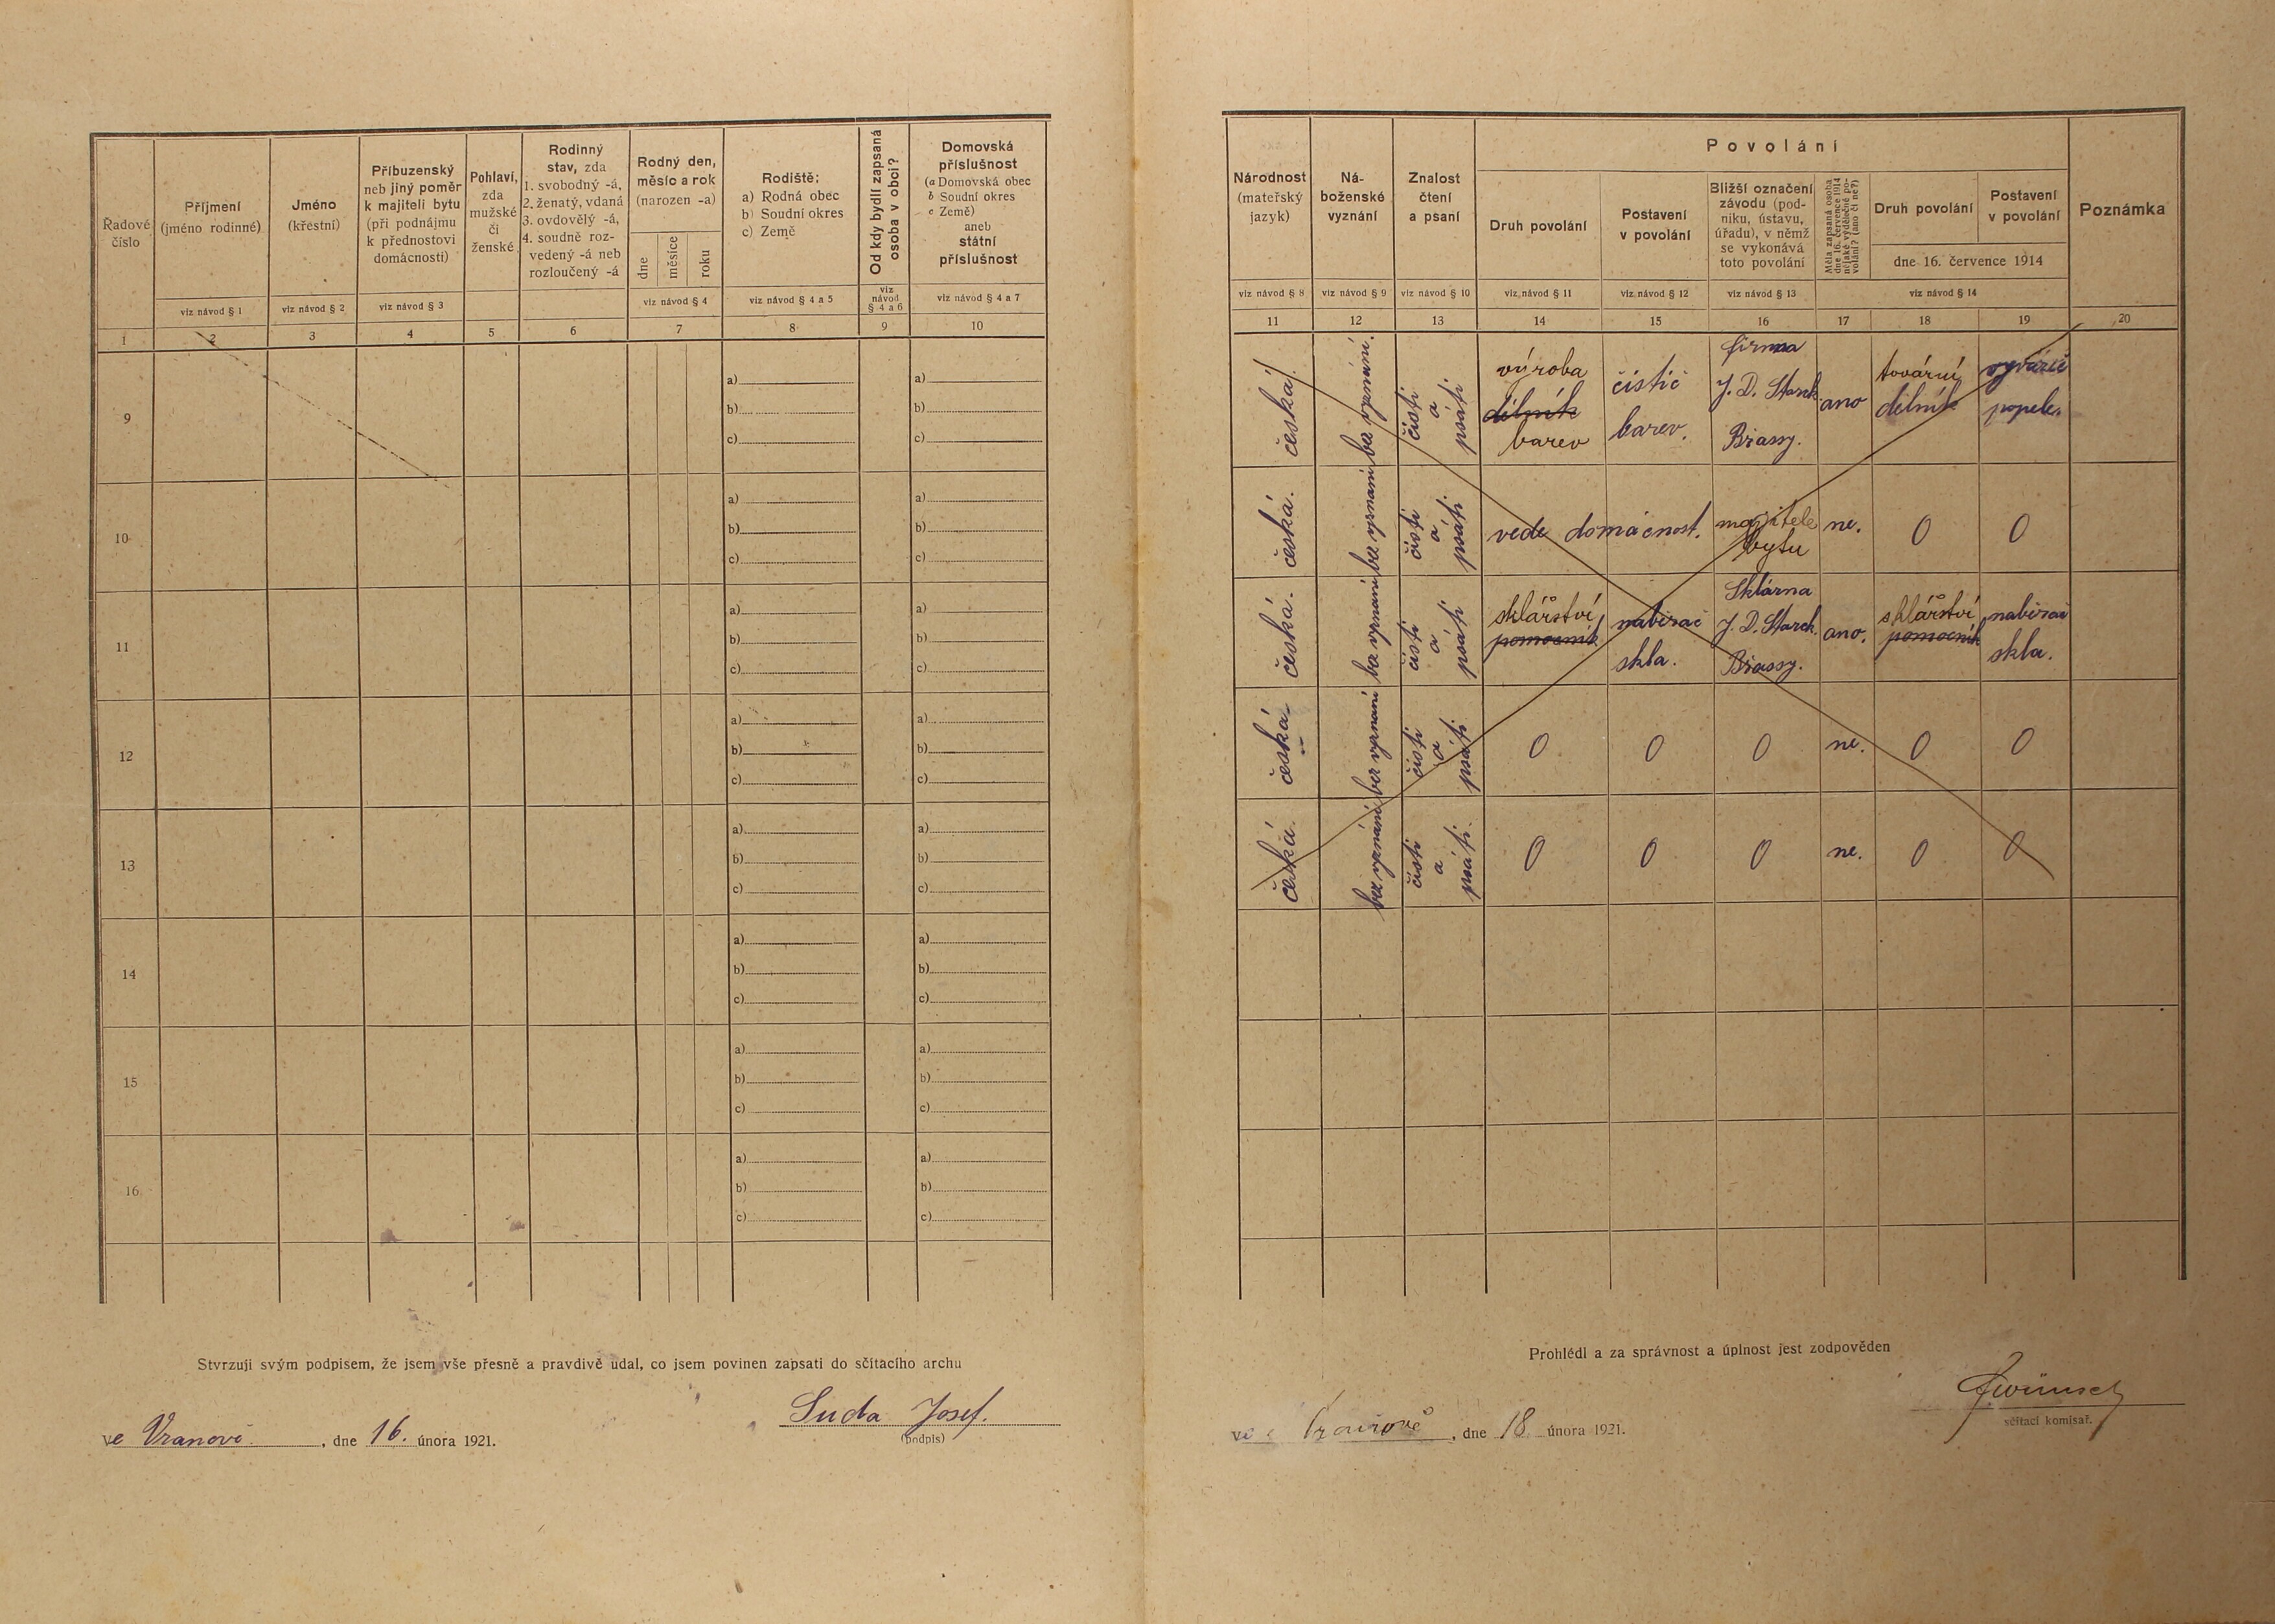 Řadové číslo
Příjmení (jméno rodinné)
viz návod § 1
Jméno (křestní)
viz návod § 2
Příbuzenský neb jiný poměr k majiteli bytu (při podnájmu k přednostovi domácnosti)
viz návod § 3
Pohlaví, zda mužské či ženské
Rodinný stav, zda
1. svobodný -á,
2. ženatý, vdaná
3. ovdovělý -á,
4. soudně rozvedený -á neb rozloučený -á
Rodný den, měsíc a rok (narozen -a)
dne
měsíce
roku
viz návod § 4
Rodiště:
a) Rodná obec
b) Soudní okres
c) Země
viz návod § 4 a 5
Od kdy bydlí zapsaná osoba v obci?
viz návod § 4 a 6
Domovská příslušnost
(a Domovská obec
b Soudní okres
c Země)
aneb
státní příslušnost
viz návod § 4 a 7
1 2 3 4 5 6 7 8 9 10
9
a) a)
b) b)
c) c)
10
a) a)
b) b)
c) c)
11
a) a)
b) b)
c) c)
12
a) a)
b) b)
c) c)
13
a) a)
b) b)
c) c)
14
a) a)
b) b)
c) c)
15
a) a)
b) b)
c) c)
16
a) a)
b) b)
c) c)
Stvrzuji svým podpisem, že jsem vše přesně a pravdivě udal, co jsem povinen zapsati do sčítacího archu
Suda Josef.
(podpis)
ve Vranově, dne 16. února 1921.
Národnost (mateřský jazyk)
viz návod § 8
Náboženské vyznání
viz návod § 9
Znalost čtení a psaní
viz návod § 10
Povolání
Druh povolání
viz návod § 11
Postavení v povolání
viz návod § 12
Bližší označení závodu (podniku, ústavu, úřadu), v němž se vykonává toto povolání
viz návod § 13
Měla zapsaná osoba dne 16. července 1914 nějaké výdělečné povolání? (ano či ne?)
Druh povolání
Postavení v povolání
dne 16. července 1914
viz návod § 14
Poznámka
11 12 13 14 15 16 17 18 19 20
česká.
bez vyznání.
čísti a psáti
výroba
dělník
barev
čistič
barev.
firma
J. D. Starck
Břasy.
ano
tovární
dělník
vyvážeč
popele.
česká.
bez vyznání
čísti a psáti
vede domácnost.
majitele
bytu
ne.
0
0
česká.
bez vyznání
čísti a psáti
sklářství
pomocník
nabírač
skla.
Sklárna
J. D. Starck.
Břassy.
ano.
sklářství
pomocník
nabírač
skla.
česká
bez vyznání
čísti a psáti
0 0 0 ne. 0 0
česká
bez vyznání
čísti a psáti.
0 0 0 ne. 0 0
Prohlédl a za správnost a úplnost jest zodpověden
sčítací komisař.
ve Vranově, dne 18 února 1921.